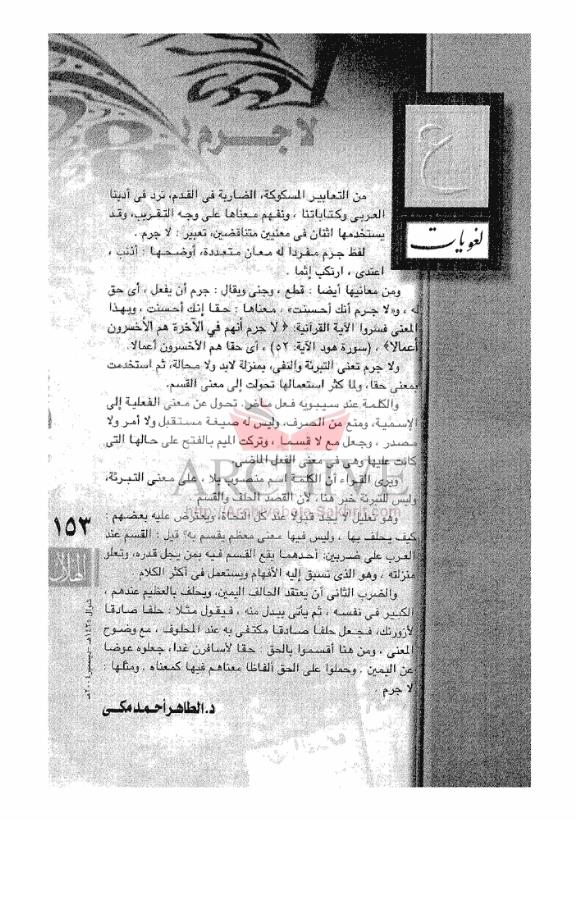 لا جرم
لغويات
من التعابير المسكوكة، الضاربة فى القدم، ترد فى أدبنا
العربى وكتاباتنا ، ونفهم معناها على وجه التقريب، وقد
يستخدمها اثنان فى معنيين متناقضين، تعبير : لا جرم .
لفظ جرم مفردا له معان متعددة، أوضحها : أذنب ،
اعتدى ، ارتكب إثما .
ومن معانيها أيضا : قطع ، وجنى ويقال : جرم أن يفعل ، أى حق
له ، و«لا جرم أنك أحسنت» ، معناها : حقا إنك أحسنت ، وبهذا
المعنى فسروا الآية القرآنية: ﴿ لا جرم أنهم في الآخرة هم الأخسرون
أعمالا﴾ ، (سورة هود الآية: ٥٢) ، أى حقا هم الأخسرون أعمالا.
ولا جرم تعنى التبرئة والنفى، بمنزلة لابد ولا محالة، ثم استخدمت
بمعنى حقا، ولما كثر استعمالها تحولت إلى معنى القسم.
والكلمة عند سيبويه فعل ماض. تحول عن معنى الفعلية إلى
الإسمية، ومنع من الصرف، وليس له صيغة مستقبل ولا أمر ولا
مصدر ، وجعل مع لا قسما ، وتركت الميم بالفتح على حالها التى
كانت عليها وهى فى معنى الفعل الماضى.
ويرى الفراء أن الكلمة اسم منصوب بلا ، على معنى التبرئة،
وليس للتبرئة خبر هنا ، لأن القصد الحلف والقسم.
وهو تعليل لا يجد قبولا عند كل النحاة، ويعترض عليه بعضهم :
كيف يحلف بها ، وليس فيها معنى معظم يقسم به؟ قيل : القسم عند
العرب على ضربين: أحدهما يقع القسم فيه بمن يجل قدره، وتعلو
منزلته ، وهو الذى تسبق إليه الأفهام ويستعمل فى أكثر الكلام.
والضرب الثانى أن يعتقد الحالف اليمين، ويحلف بالعظيم عندهم ،
الكبير فى نفسه ، ثم يأتى ببدل منه ، فيقول مثلا : حلفا صادقا
لأزورنك، فجعل حلفا صادقا مكتفى به عند المحلوف ، مع وضوح
المعنى ، ومن هنا أقسموا بالحق : حقا لأسافرن غدا، جعلوه عوضا
عن اليمين . وحملوا على الحق ألفاظا معناهم فيها كمعناه . ومثلها :
لا جرم .
د. الطاهر أحمد مكى
١٥٣
الهلال
شوال ١٤٢٠هـ -ديسمبر
ARCHIVE
http://Archivebeta.Sakhrit.com